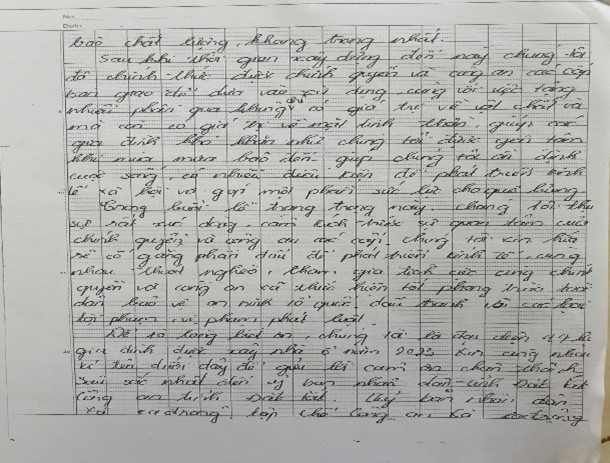 bảo chất lượng, khang trang nhất.
Sau khi thời gian xây dựng đến nay chúng tôi
đã chính thức được chính quyền và công an các cấp
bàn giao để đưa vào sử dụng, cùng với việc tặng
nhiều phần quà không chỉ có giá trị về vật chất và
mà còn có giá trị về mặt tinh thần, giúp các
gia đình khó khăn như chúng tôi được yên tâm
khi mùa mưa bão đến giúp chúng tôi ổn định
cuộc sống, có nhiều điều kiện để phát triển kinh
tế xã hội và góp một phần sức lực cho quê hương
Trong buổi lễ trang trọng này, chúng tôi thực
sự rất xúc động, cảm kích trước sự quan tâm của
chính quyền và công an các cấp, chúng tôi xin hứa
sẽ cố gắng phấn đấu để phát triển kinh tế, cùng
nhau thoát nghèo, tham gia tích cực cùng chính
quyền và công an xã thực hiện tốt phong trào toàn
dân bảo vệ an ninh tổ quốc, đấu tranh với các loại
tội phạm, vi phạm pháp luật.
Để tỏ lòng biết ơn, chúng tôi là đại diện
gia đình được xây nhà ở năm 2023 xin cùng nhau
kí tên dưới đây để gửi lời cảm ơn chân thành
sâu sắc nhất đến uỷ ban nhân dân tỉnh Đắk Lắk
Công an tỉnh Đắk Lắk, Uỷ ban nhân dân
xã tập thể Công an xã